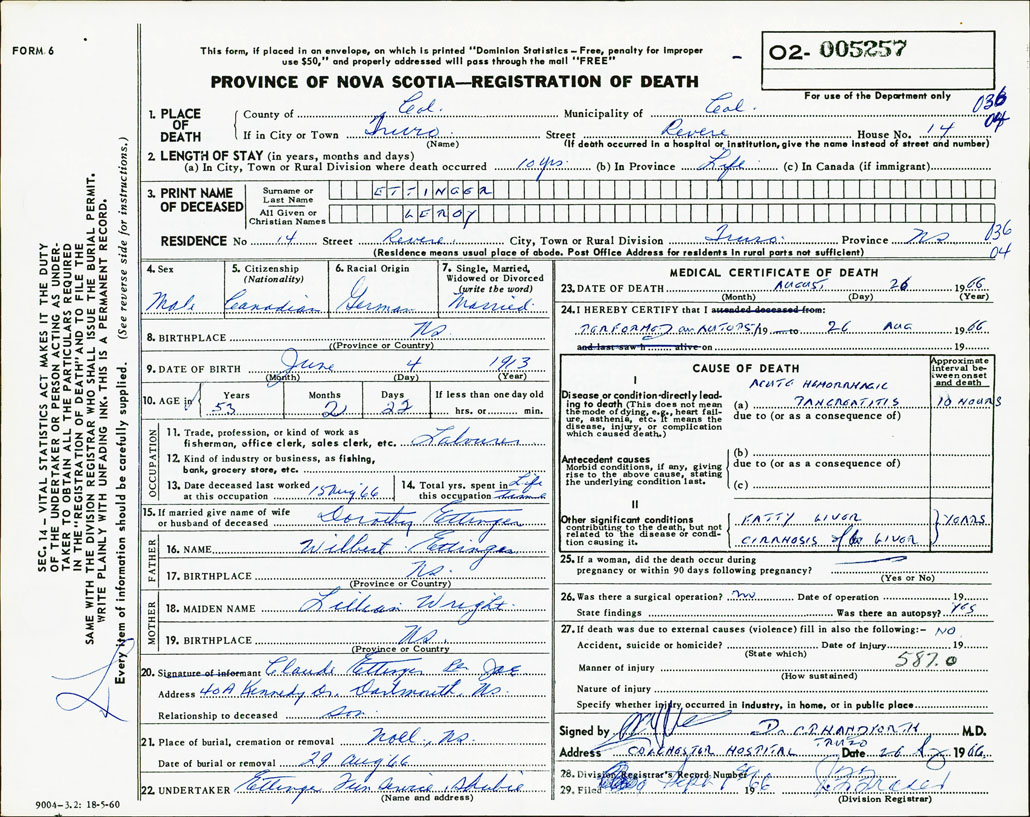 FORM 6
This form, if placed in an envelope, on which is printed "Dominion Statistics – Free, penalty for improper
use $50," and properly addressed will pass through the mail "FREE"
PROVINCE OF NOVA SCOTIA—REGISTRATION OF DEATH
02- 005257
For use of the Department only
036
04
1. PLACE OF DEATH
County of Col. Municipality of Col.
If in City or Town Truro Street Revere House No. 14
(Name) (If death occurred in a hospital or institution, give the name instead of street and number)
2. LENGTH OF STAY (in years, months and days)
(a) In City, Town or Rural Division where death occurred 10 yrs. (b) In Province Life (c) In Canada (if immigrant)
3. PRINT NAME OF DECEASED
Surname or Last Name ETTINGER
All Given or Christian Names LEROY
RESIDENCE No 14 Street Revere City, Town or Rural Division Truro Province NS
036
04
(Residence means usual place of abode. Post Office Address for residents in rural parts not sufficient)
4. Sex
Male
5. Citizenship (Nationality)
Canadian
6. Racial Origin
German
7. Single, Married, Widowed or Divorced (write the word)
Married
8. BIRTHPLACE Ns.
((Province or Country)
9. DATE OF BIRTH June 4 1913
(Month) (Day) (Year)
10. AGE in Years 53 Months 2 Days 22 If less than one day old hrs. or min.
OCCUPATION
11. Trade, profession, or kind of work as
fisherman, office clerk, sales clerk, etc. Labourer
12. Kind of industry or business, as fishing,
bank, grocery store, etc.
13. Date deceased last worked
at this occupation 15 Aug 66
14. Total yrs. spent in
this occupation Life time
15. If married give name of wife
or husband of deceased Dorothy Ettinger
FATHER
16. NAME Wilbert Ettinger
17. BIRTHPLACE Ns.
(Province or Country)
MOTHER
18. MAIDEN NAME Lillian Wright
19. BIRTHPLACE Ns.
(Province or Country)
20. Signature of informant Claude Ettinger
Address 40A Kennedy Dr. Dartmouth, Ns.
Relationship to deceased son
21. Place of burial, cremation or removal Noel, Ns.
Date of burial or removal 29 Aug 66
22. UNDERTAKER Ettinger Fun
(Name and address)
9004–3.2: 18-5-60
MEDICAL CERTIFICATE OF DEATH
23. DATE OF DEATH AUGUST 26 1966
(Month) (Day) (Year)
24. I HEREBY CERTIFY that I attended deceased from:
PERFORMED an AUTOPSY 19 to 26 AUG 1966
and last saw h alive on 19
CAUSE OF DEATH
Approximate interval between onset and death
I
Disease or condition directly leading to death (This does not mean the mode of dying, e.g., heart failure, asthenia, etc. It means the disease, injury, or complication which caused death.)
ACUTE HEMORRHAGIC
(a) PANCREATITIS 10 HOURS
due to (or as a consequence of)
Antecedent causes
Morbid conditions, if any, giving rise to the above cause, stating the underlying condition last.
(b)
due to (or as a consequence of)
(c)
II
Other significant conditions
contributing to the death, but not related to the disease or condition causing it.
FATTY LIVER
CIRRHOSIS of LIVER
YEARS
25. If a woman, did the death occur during
pregnancy or within 90 days following pregnancy?
(Yes or No)
26. Was there a surgical operation? no Date of operation 19
State findings Was there an autopsy? Yes
27. If death was due to external causes (violence) fill in also the following:- NO
Accident, suicide or homicide? Date of injury 19
(State which)
587.0
Manner of injury
(How sustained)
Nature of injury
Specify whether injury occurred in industry, in home, or in public place
Signed by Dr. C.P. HANDFORTH M.D.
Address COLCHESTER HOSPITAL TRURO Date 26 1966
28. Division Registrar's Record Number
29. Filed Sept 1 1966
(Division Registrar)
SEC. 14 – VITAL STATISTICS ACT MAKES IT THE DUTY
OF THE UNDERTAKER OR PERSON ACTING AS UNDER-
TAKER TO OBTAIN ALL THE PARTICULARS REQUIRED
IN THE "REGISTRATION OF DEATH" AND TO FILE THE
SAME WITH THE DIVISION REGISTRAR WHO SHALL ISSUE THE BURIAL PERMIT.
WRITE PLAINLY WITH UNFADING INK. THIS IS A PERMANENT RECORD.
Every item of information should be carefully supplied. (See reverse side for instructions.)